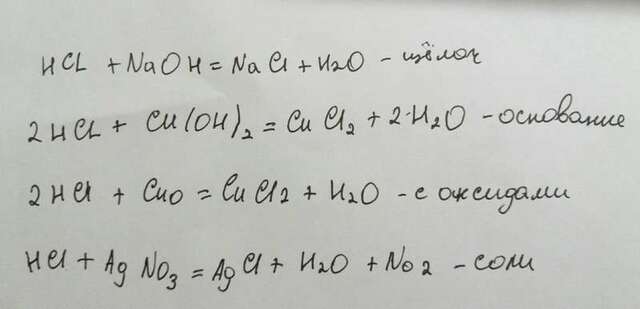 HCL + NaOH = NaCl + H2O - щёлоч
2HCL + Cu(OH)2 = CuCl2 + 2·H2O - основание
2HCl + CuO = CuCl2 + H2O - с оксидами
HCl + AgNO3 = AgCl + H2O + No2 - соли